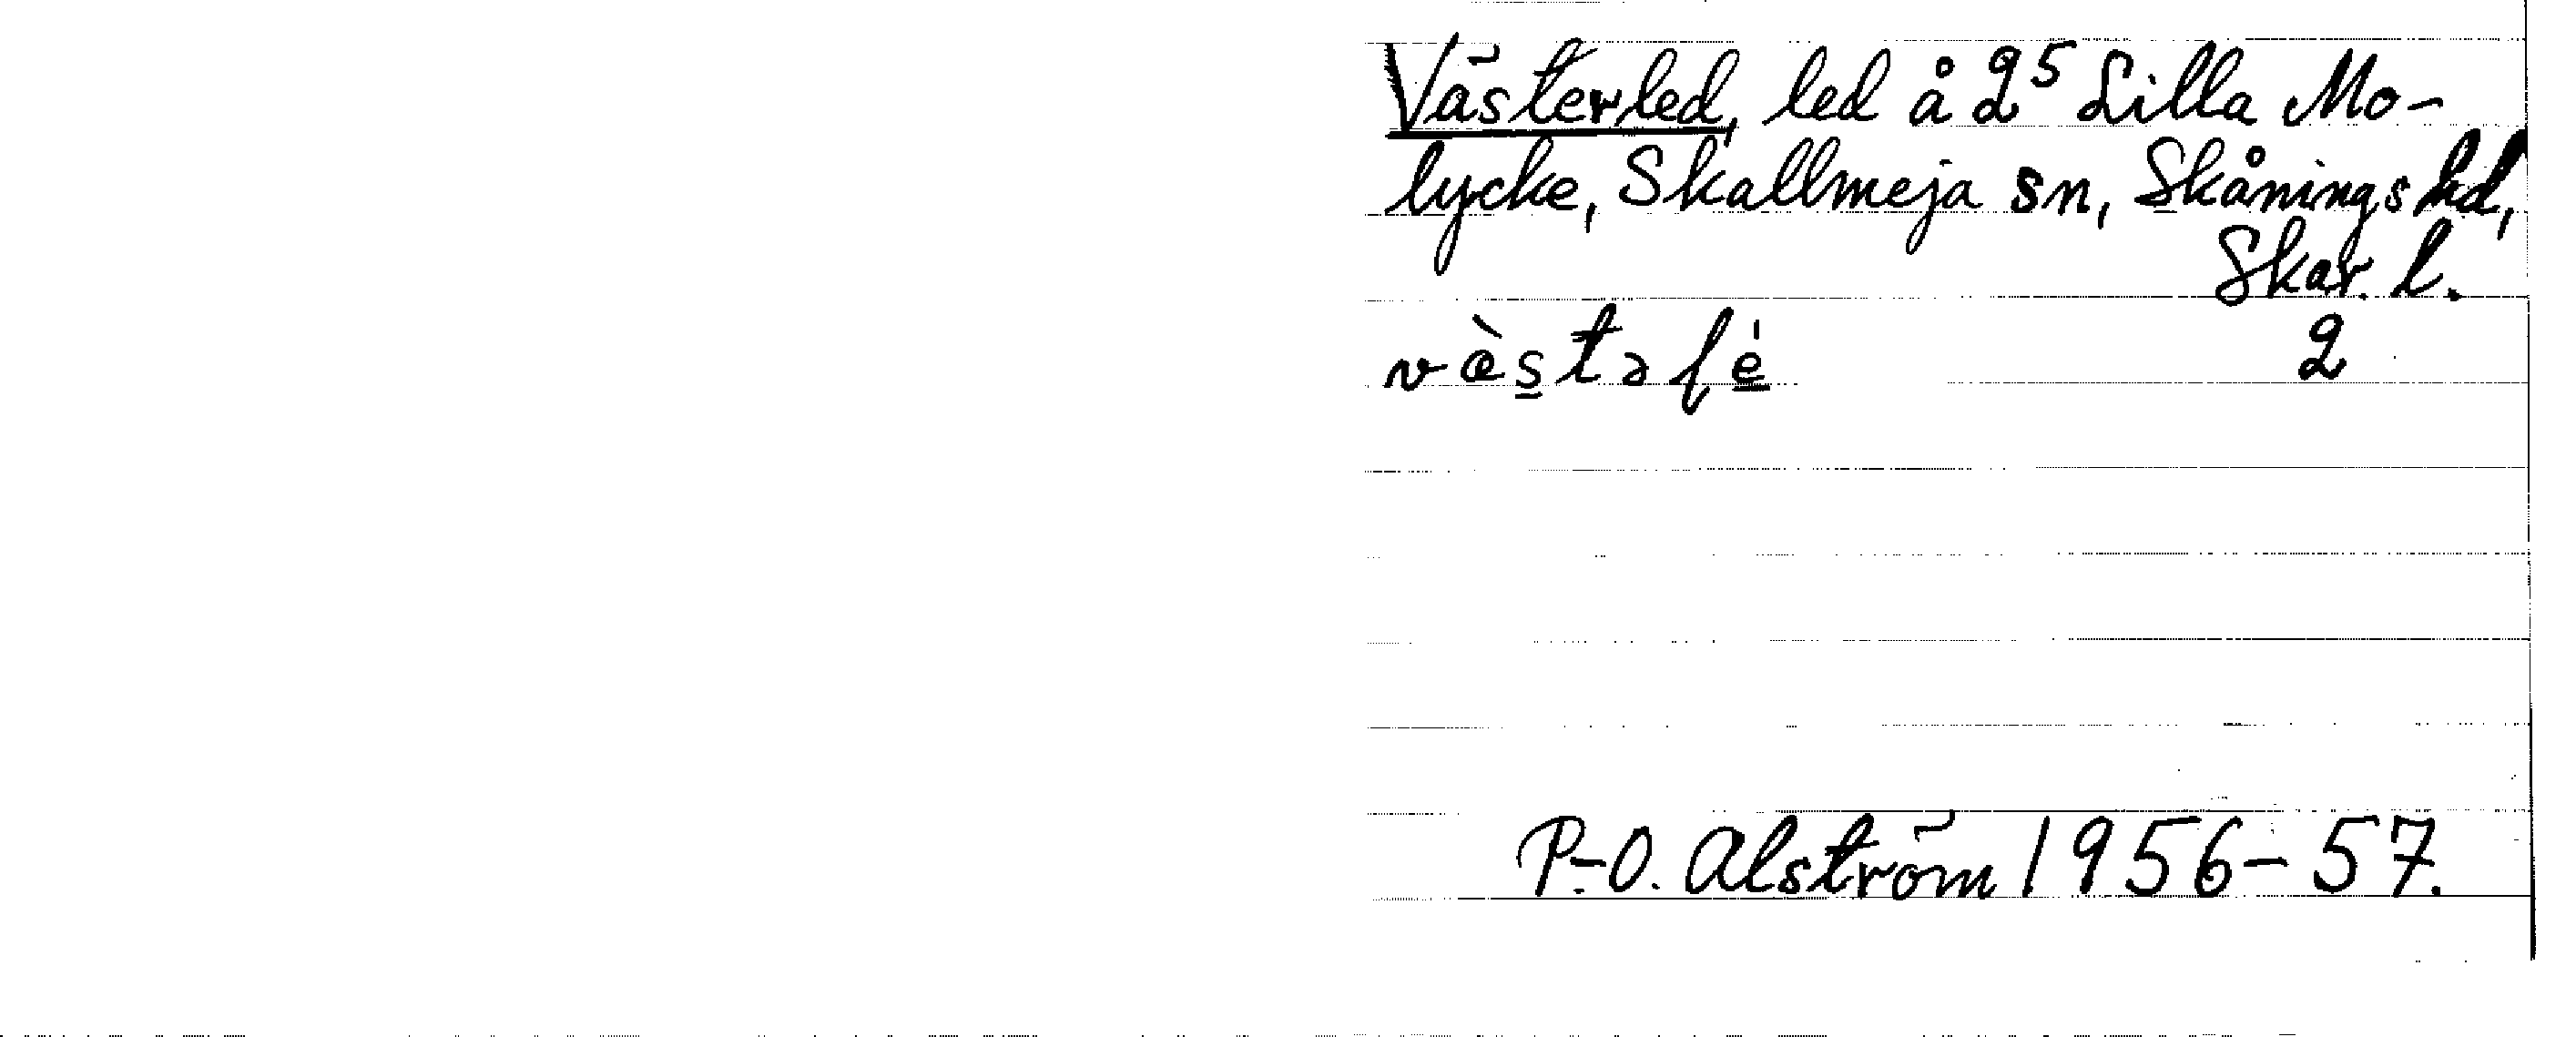 Västerled, led å 2⁵ Lilla Mo-
lycke, Skallmeja sn, Skånings hd,
Skar. l.
væ̀stəɺé 2
P-O. Alström 1956-57.